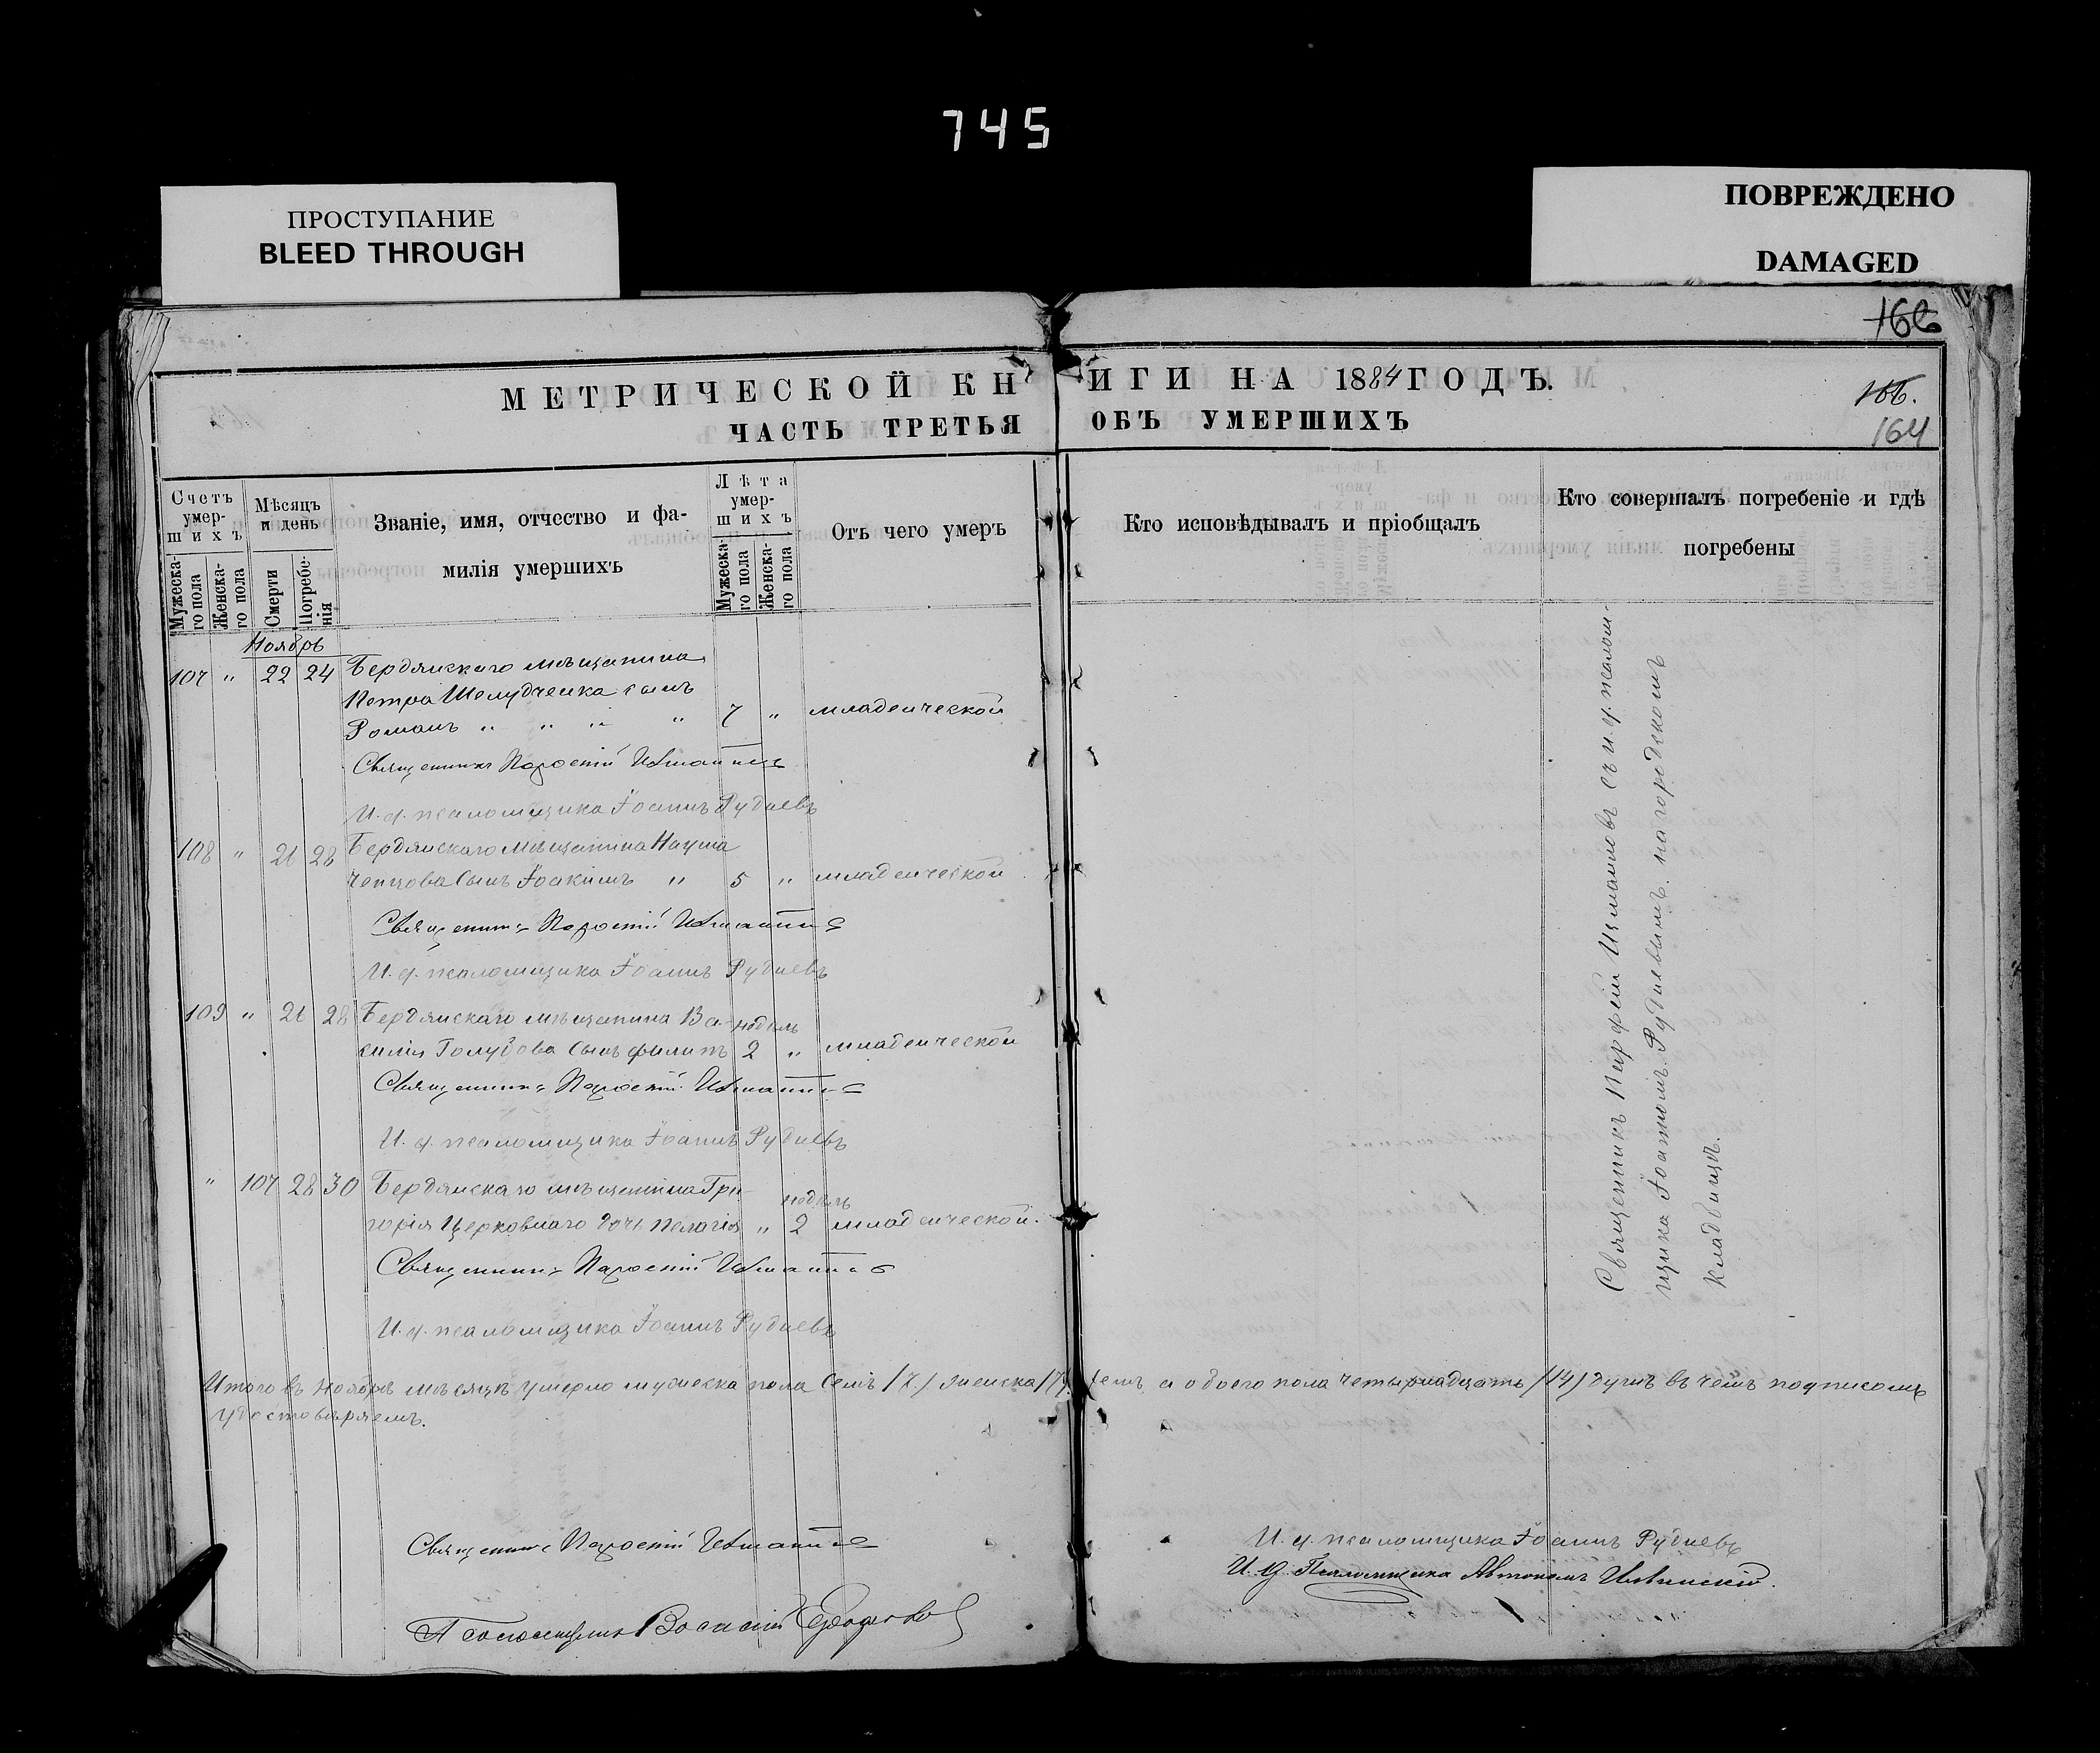 745
ПРОСТУПАНИЕ
BLEED THROUGH
ПОВРЕЖДЕНО
DAMAGED
166
МЕТРИЧЕСКОЙ КНИГИ НА 1884 ГОДЪ.
166.
ЧАСТЬ ТРЕТЬЯ ОБЪ УМЕРШИХЪ
164
Счетъ умер-шихъ
Мужеска-го пола
Женска-го пола
Мѣсяцъ и день
Смерти
Погребе-нія
Званіе, имя, отчество и фа-
милія умершихъ
Лѣта умер-шихъ
Мужеска-го пола
Женска-го пола
Отъ чего умеръ
Кто исповѣдывалъ и пріобщалъ
Кто совершалъ погребеніе и гдѣ
погребены
Ноябрь
107 " 22 24 Бердянскаго мѣщанина
Петра Шелудченка сынъ
Романъ " " " " 7 " младенческой
Священникъ
И. д. псаломщика Іоаннъ Рудневъ
108 " 26 28 Бердянскаго мѣщанина Наума
сынъ Іоакимъ " 5 " младенческой
Священникъ
И. д. псаломщика Іоаннъ Рудневъ
109 " 26 28 Бердянскаго мѣщанина Ва-
недѣль
силія Голубова сынъ Филипъ 2 " младенческой
Священникъ
И. д. псаломщика Іоаннъ Рудневъ
" 107 28 30 Бердянскаго мѣщанина Гри-
недѣль
горія Церковнаго дочь Пелагія " 2 младенческой.
Священникъ
И. д. псаломщика Іоаннъ Рудневъ
Священникъ Измаиловъ съ и. д. псалом-
щика Іоанномъ Рудневымъ. на городскомъ
кладбищѣ.
Итого въ Ноябрѣ мѣсяцѣ умерло мужеска пола семь /7/ женска /7/ семь, а обоего пола четырнадцать /14/ душъ въ чемъ подписомъ
удостовѣряемъ.
Священникъ
И. д. псаломщика Іоаннъ Рудневъ
И. д. Псаломщика Автономъ
Псаломщикъ Василій